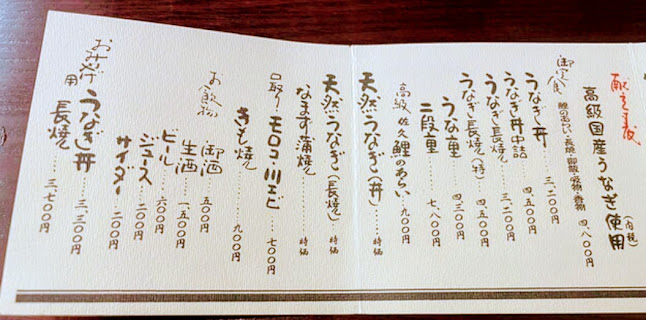 献立表
高級国産うなぎ使用(内税)
御定食 四、八〇〇円
鯉のあらい・長焼・御飯・吸物・香物
うなぎ丼 三、二〇〇円
うなぎ丼中詰 四、五〇〇円
うなぎ長焼 三、二〇〇円
うなぎ長焼(特) 四、五〇〇円
うな重 四、三〇〇円
二段重 七、八〇〇円
高級佐久鯉のあらい 九〇〇円
天然うなぎ(丼) 時価
天然うなぎ(長焼) 時価
なまず蒲焼 時価
口取りモロコ・川エビ 七〇〇円
きも焼 九〇〇円
お飲物
御酒 五〇〇円
生酒 一、五〇〇円
ビール 六〇〇円
ジュース 二〇〇円
サイダー 二〇〇円
おみやげ用
うなぎ丼 三、三〇〇円
長焼 三、七〇〇円